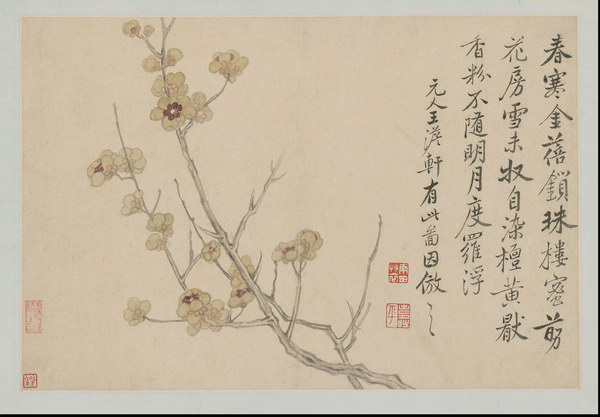 春寒金蓓鎖珠樓蜜剪
花房雪未收自染檀黄厭
香粉不随明月度羅浮
元人王澹軒有此啚因倣之